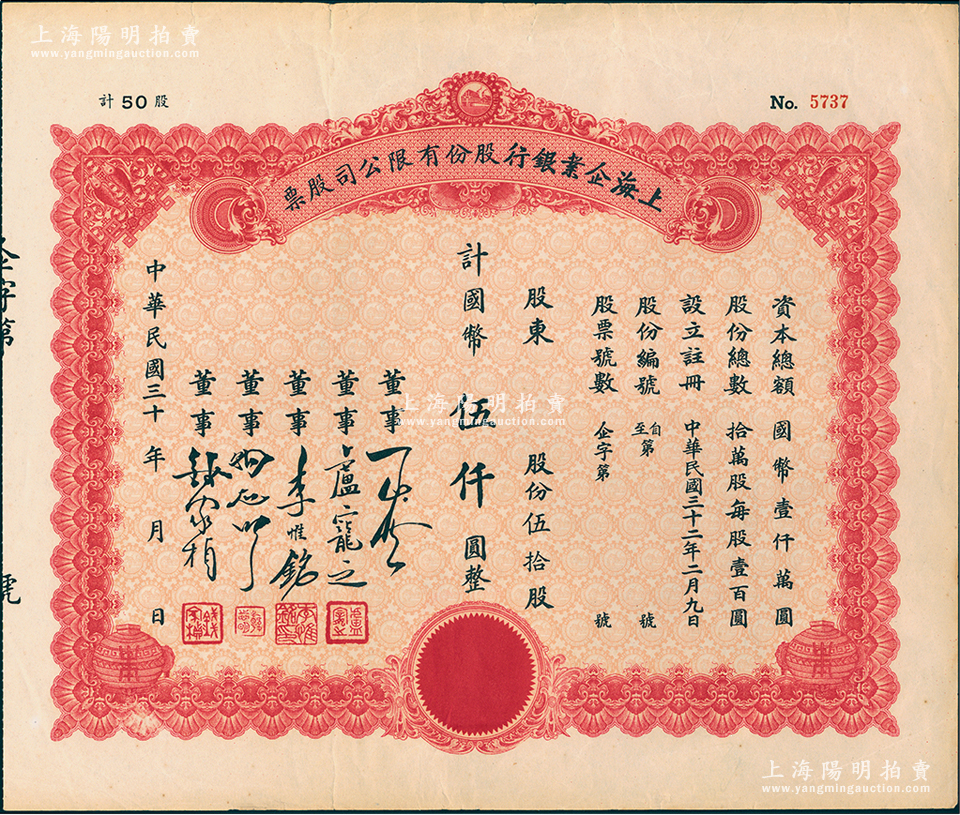 上海陽明拍賣
www.yangmingauction.com
計 50 股
No. 5737
上海企業銀行股份有限公司股票
資本總額 國幣壹仟萬圓
股份總數 拾萬股每股壹百圓
設立註冊 中華民國三十二年二月九日
股份編號 自至第 號
股票號數 企字第 號
股東 股份伍拾股
計國幣伍仟圓整
董事
董事 盧寵之
董事 李惟銘
董事
董事 錢家楨
中華民國三十 年 月 日
企字第 號
上海陽明拍賣
www.yangmingauction.com
上海陽明拍賣
www.yangmingauction.com